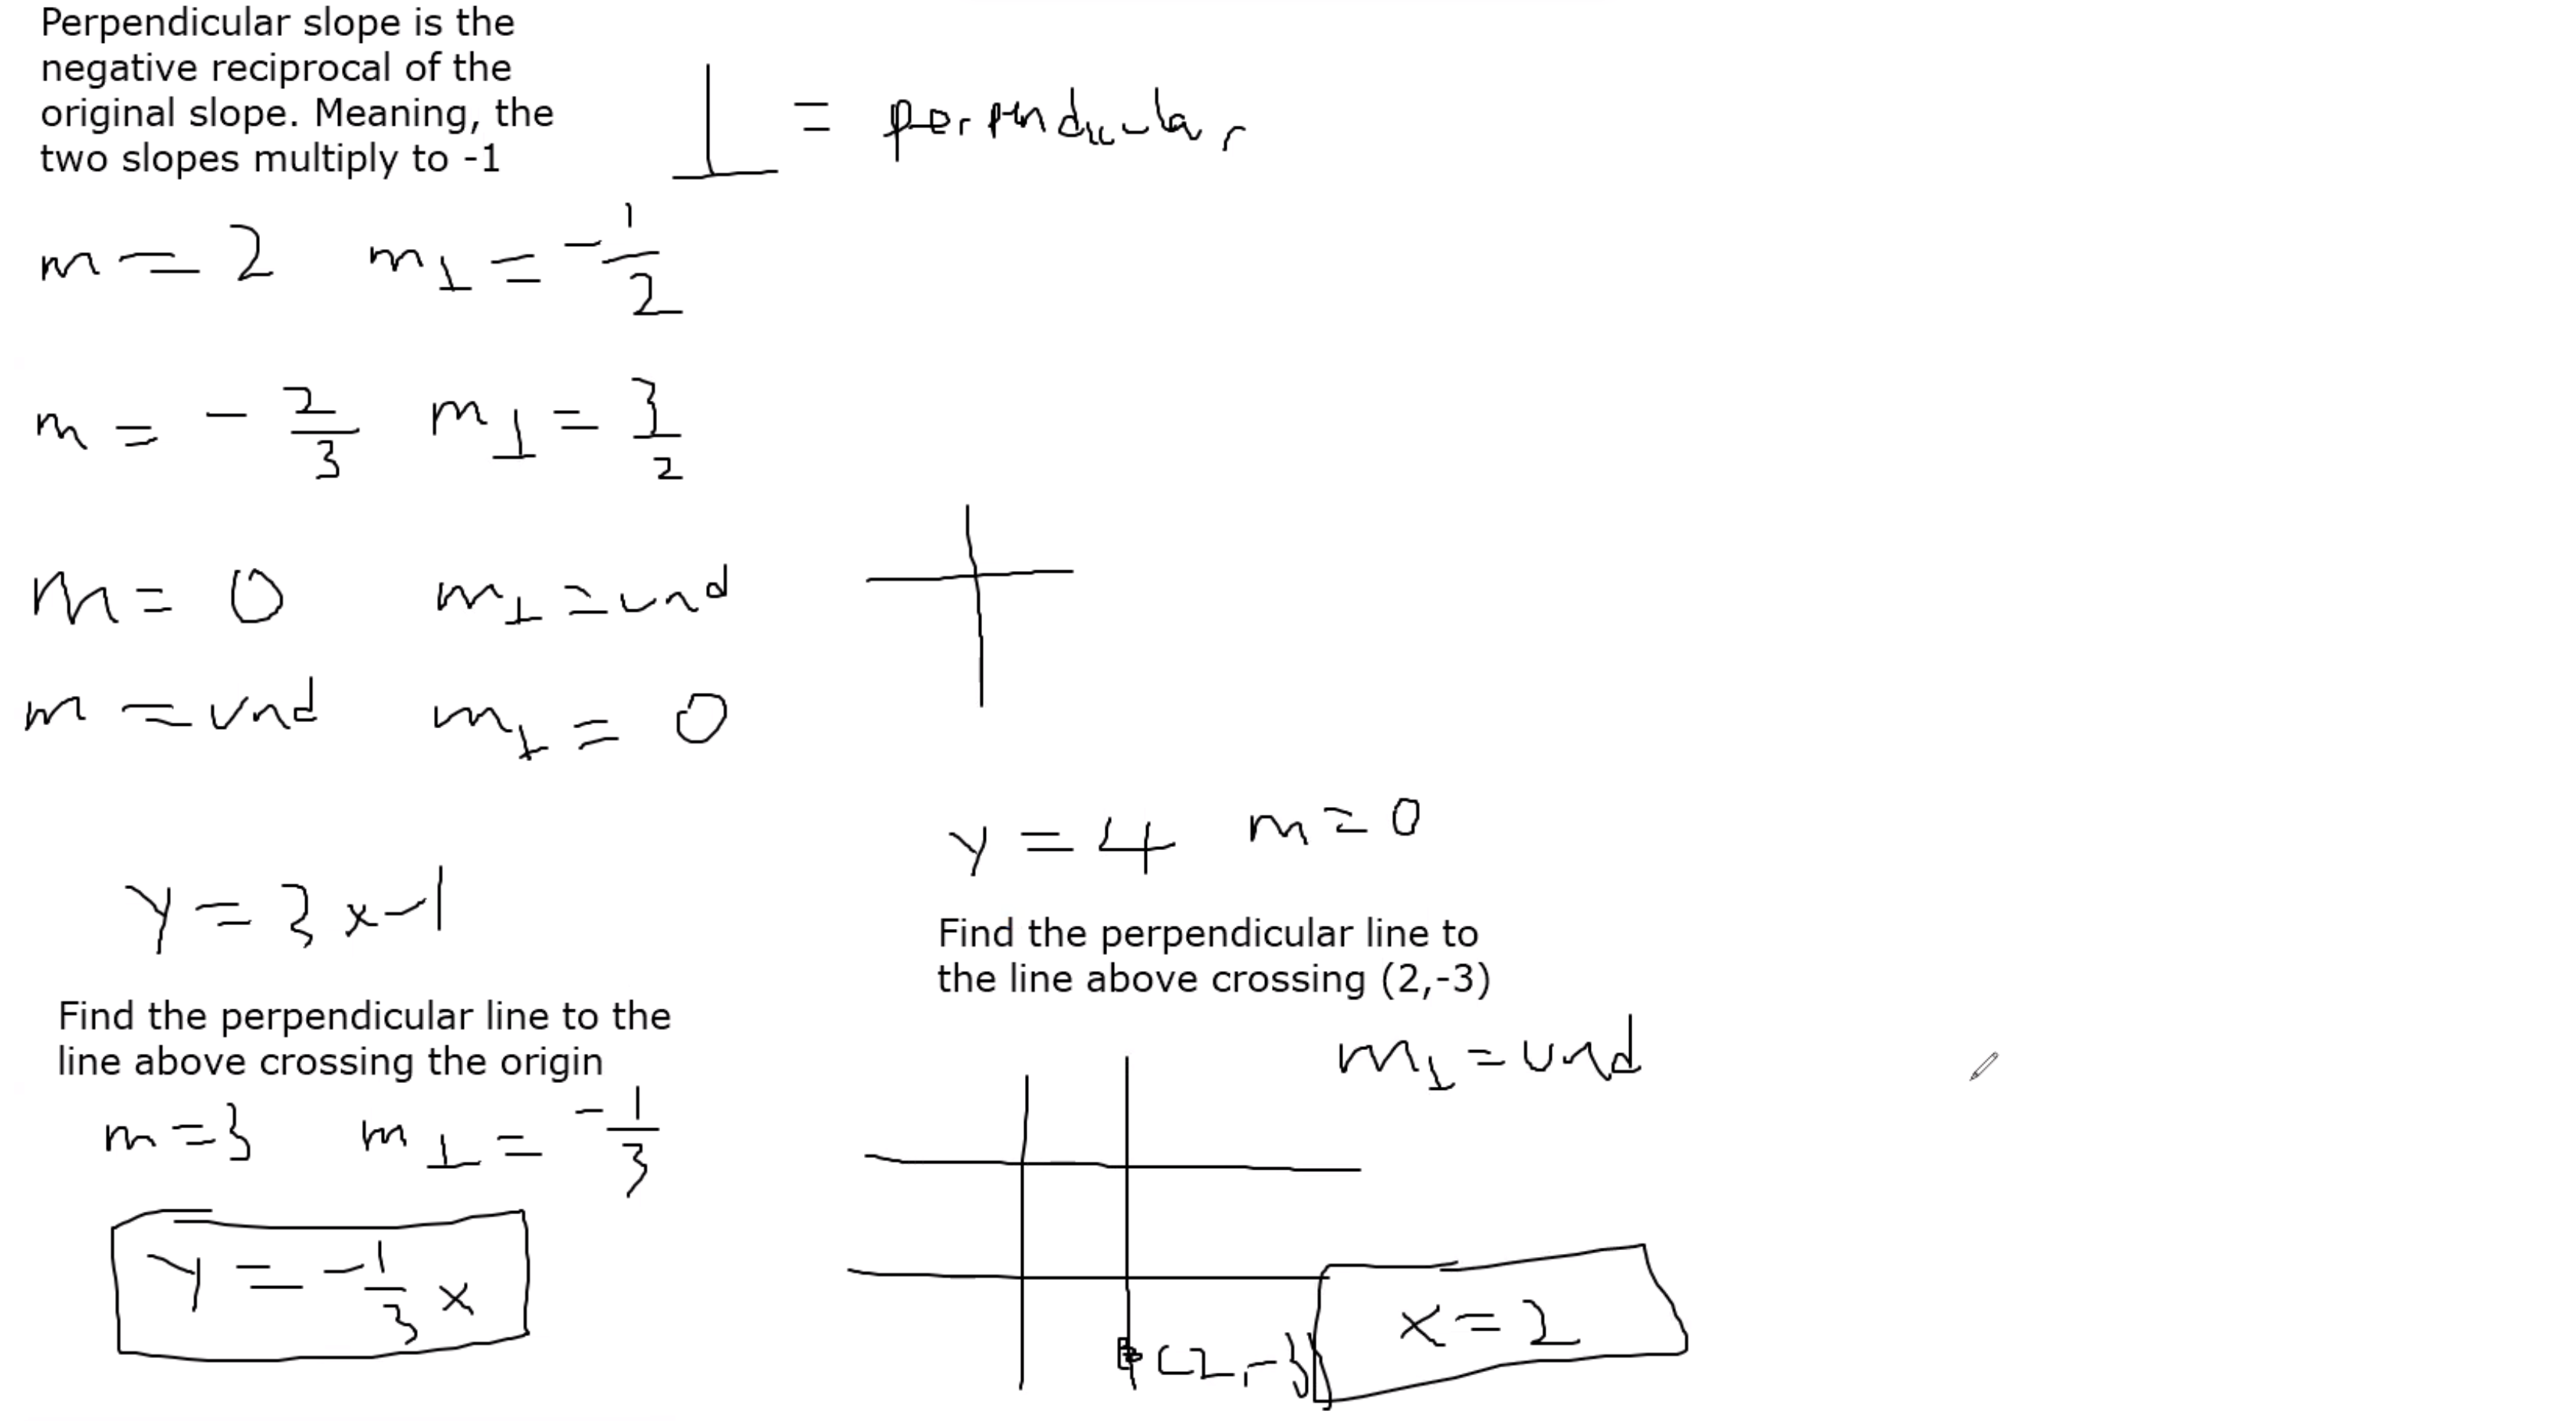 Perpendicular slope is the
negative reciprocal of the
original slope. Meaning, the
two slopes multiply to -1
⊥ = perpendicular
m = 2 m⊥ = -1/2
m = -2/3 m⊥ = 3/2
m = 0 m⊥ = und
m = und m⊥ = 0
y = 3x-1
Find the perpendicular line to the
line above crossing the origin
m = 3 m⊥ = -1/3
y = -1/3 x
y = 4 m = 0
Find the perpendicular line to
the line above crossing (2,-3)
m⊥ = und
(2,-3)
x = 2